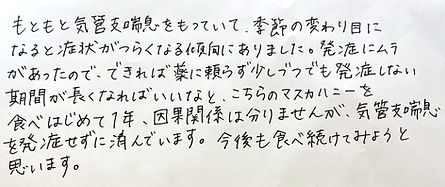 もともと気管支喘息をもっていて、季節の変わり目に
なると症状がつらくなる傾向にありました。発症にムラ
があったので、できれば薬に頼らず少しづつでも発症しない
期間が長くなればいいなと、こちらのマヌカハニーを
食べはじめて1年、因果関係は分りませんが、気管支喘息
を発症せずに済んでいます。今後も食べ続けてみようと
思います。